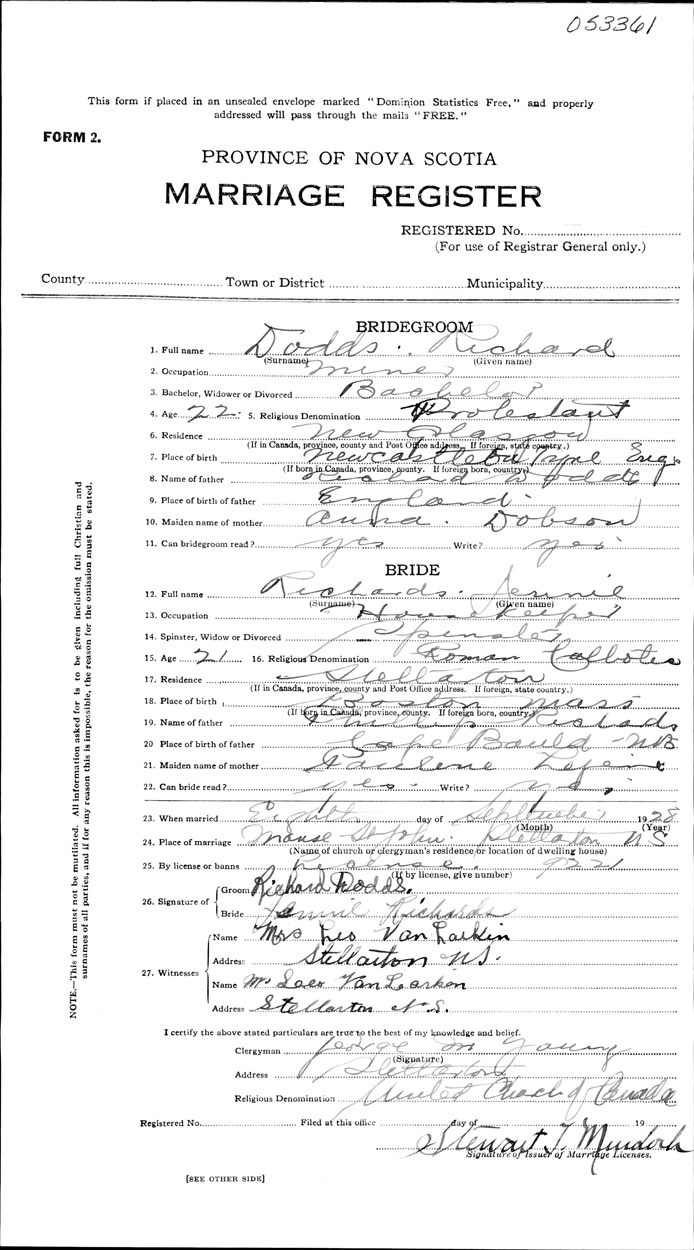 053361
This form if placed in an unsealed envelope marked "Dominion Statistics Free," and properly
addressed will pass through the mails "FREE."
FORM 2.
PROVINCE OF NOVA SCOTIA
MARRIAGE REGISTER
REGISTERED No.
(For use of Registrar General only.)
County Town or District Municipality
BRIDEGROOM
1. Full name Dodds. Richard
(Surname) (Given name)
2. Occupation miner
3. Bachelor, Widower or Divorced Bachelor
4. Age 22. 5. Religious Denomination Protestant
6. Residence New Glasgow
(If in Canada, province, county and Post Office address. If foreign, state country.)
7. Place of birth Newcastle on Tyne Eng.
(If born in Canada, province, county. If foreign born, country)
8. Name of father Richard Dodds
9. Place of birth of father England
10. Maiden name of mother Anna. Dobson
11. Can bridegroom read? yes Write? yes
BRIDE
12. Full name Richards. Jennie
(Surname) (Given name)
13. Occupation House Keeper
14. Spinster, Widow or Divorced Spinster
15. Age 21 16. Religious Denomination Roman
17. Residence Stellarton
(If in Canada, province, county and Post Office address. If foreign, state country.)
18. Place of birth Boston Mass
(If born in Canada, province, county. If foreign born, country.)
19. Name of father Phillip Richards
20 Place of birth of father Cape Bauld - NB
21. Maiden name of mother
22. Can bride read? yes. Write? yes
23. When married Eighth day of September 1928
(Month) (Year)
24. Place of marriage Manse St John. Stellarton NS
(Name of church or clergyman's residence or location of dwelling house)
25. By license or banns License. 9221
(If by license, give number)
26. Signature of
Groom Richard Dodds.
Bride Jennie Richards
27. Witnesses
Name Mrs Leo Van Larkin
Address Stellarton NS.
Name Mr Leo Van Larken
Address Stellarton N.S.
I certify the above stated particulars are true to the best of my knowledge and belief.
Clergyman George M Young
(Signature)
Address Stellarton
Religious Denomination United Church of Canada
Registered No. Filed at this office day of 19
Stewart T. Murdoch
Signature of Issuer of Marriage Licenses.
[SEE OTHER SIDE]
NOTE.—This form must not be mutilated. All information asked for is to be given including full Christian and
surnames of all parties, and if for any reason this is impossible, the reason for the omission must be stated.